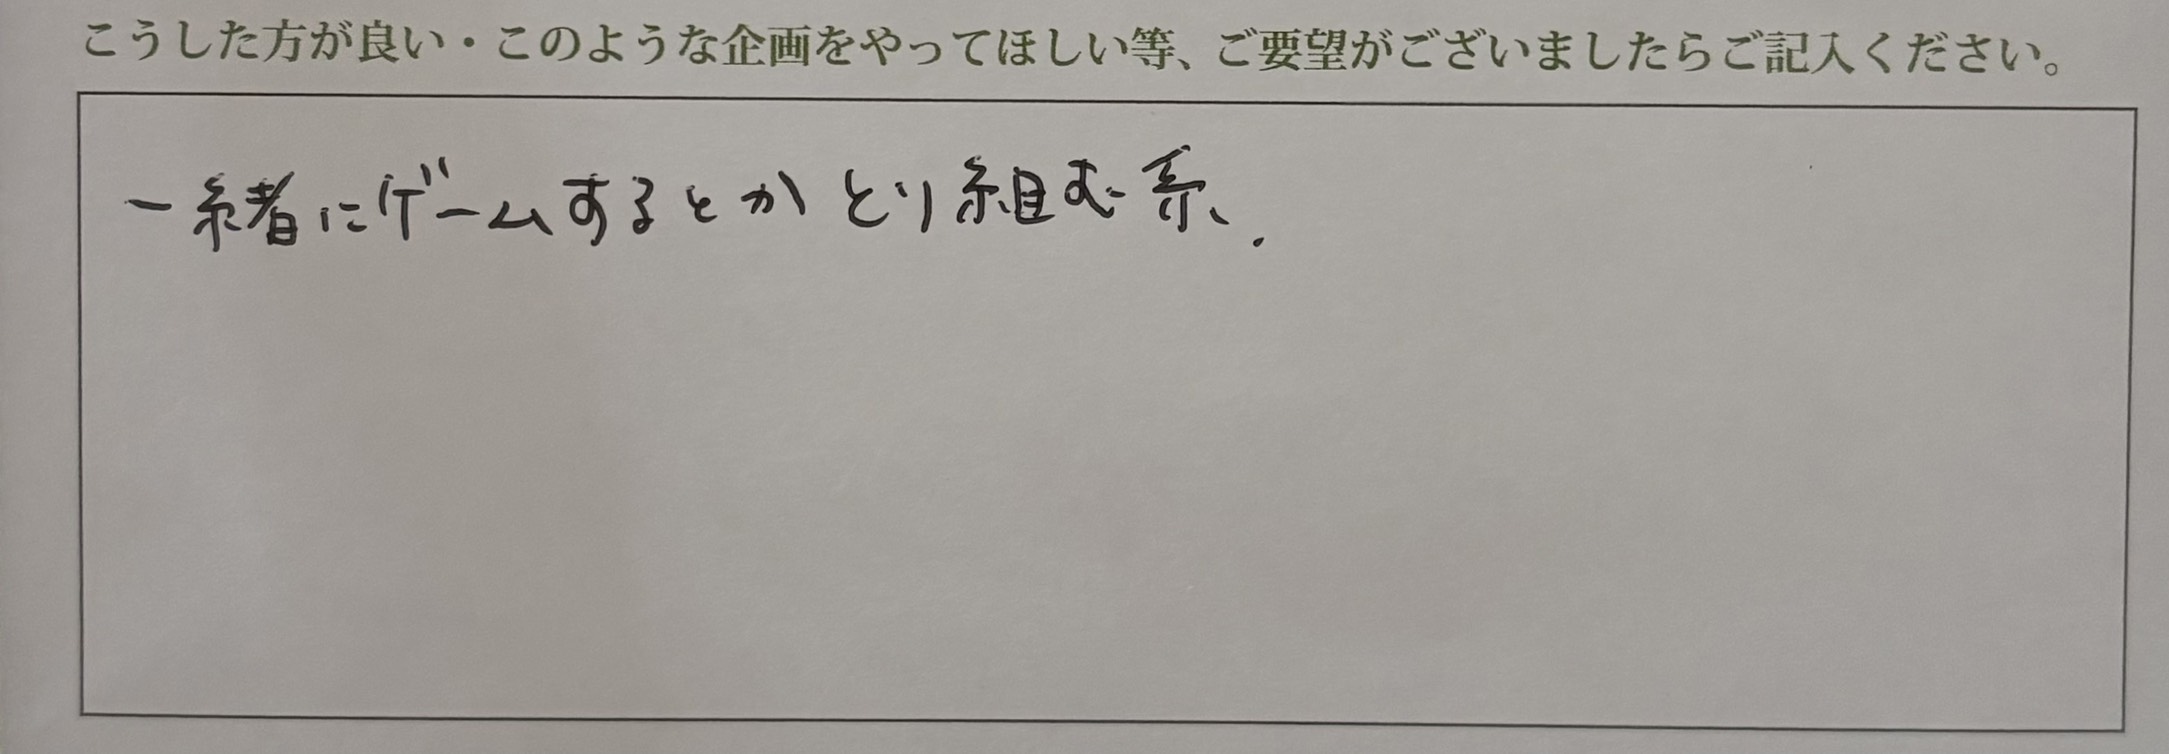 こうした方が良い・このような企画をやってほしい等、ご要望がございましたらご記入ください。
一緒にゲームするとかとり組む系.